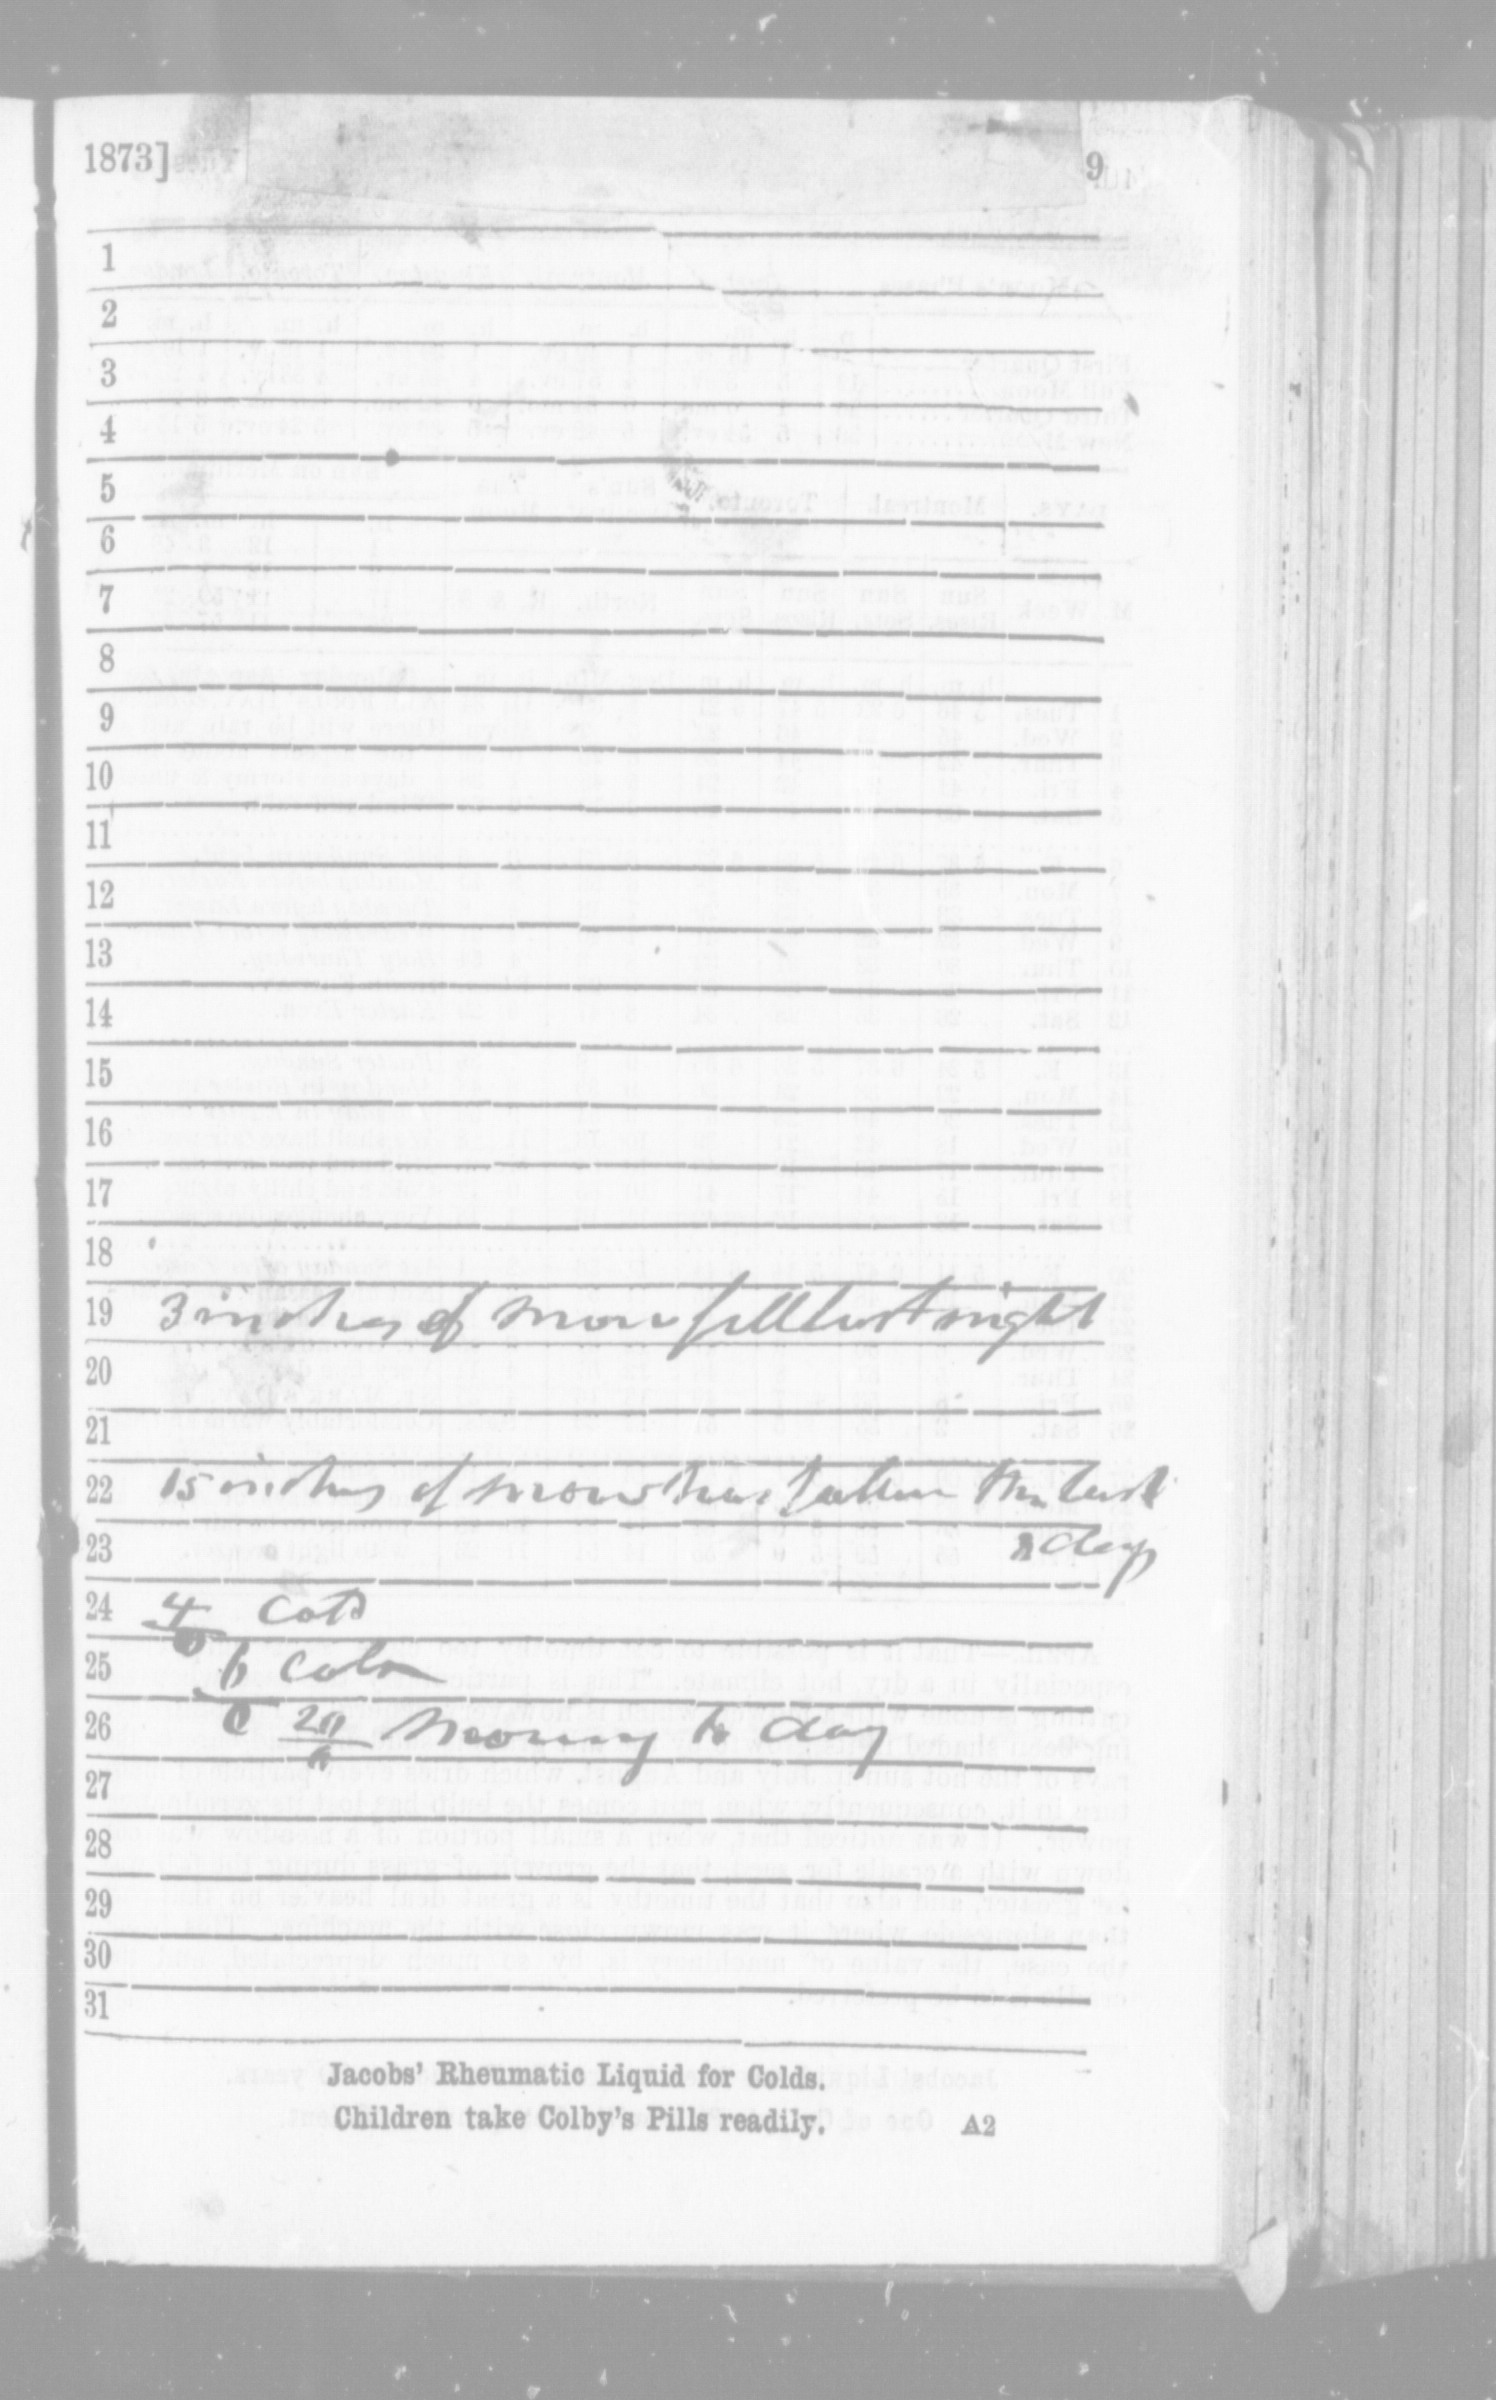 1873]
9
1
2
3
4
5
6
7
8
9
10
11
12
13
14
15
16
17
18
19 3 inches of snow fell last night
20
21
22 15 inches of snow has fallen the last
23 2 days
24 4/0 Cold
25 6 Cold
26 20 snowing to day
27
28
29
30
31
Jacobs' Rheumatic Liquid for Colds.
Children take Colby's Pills readily. A2